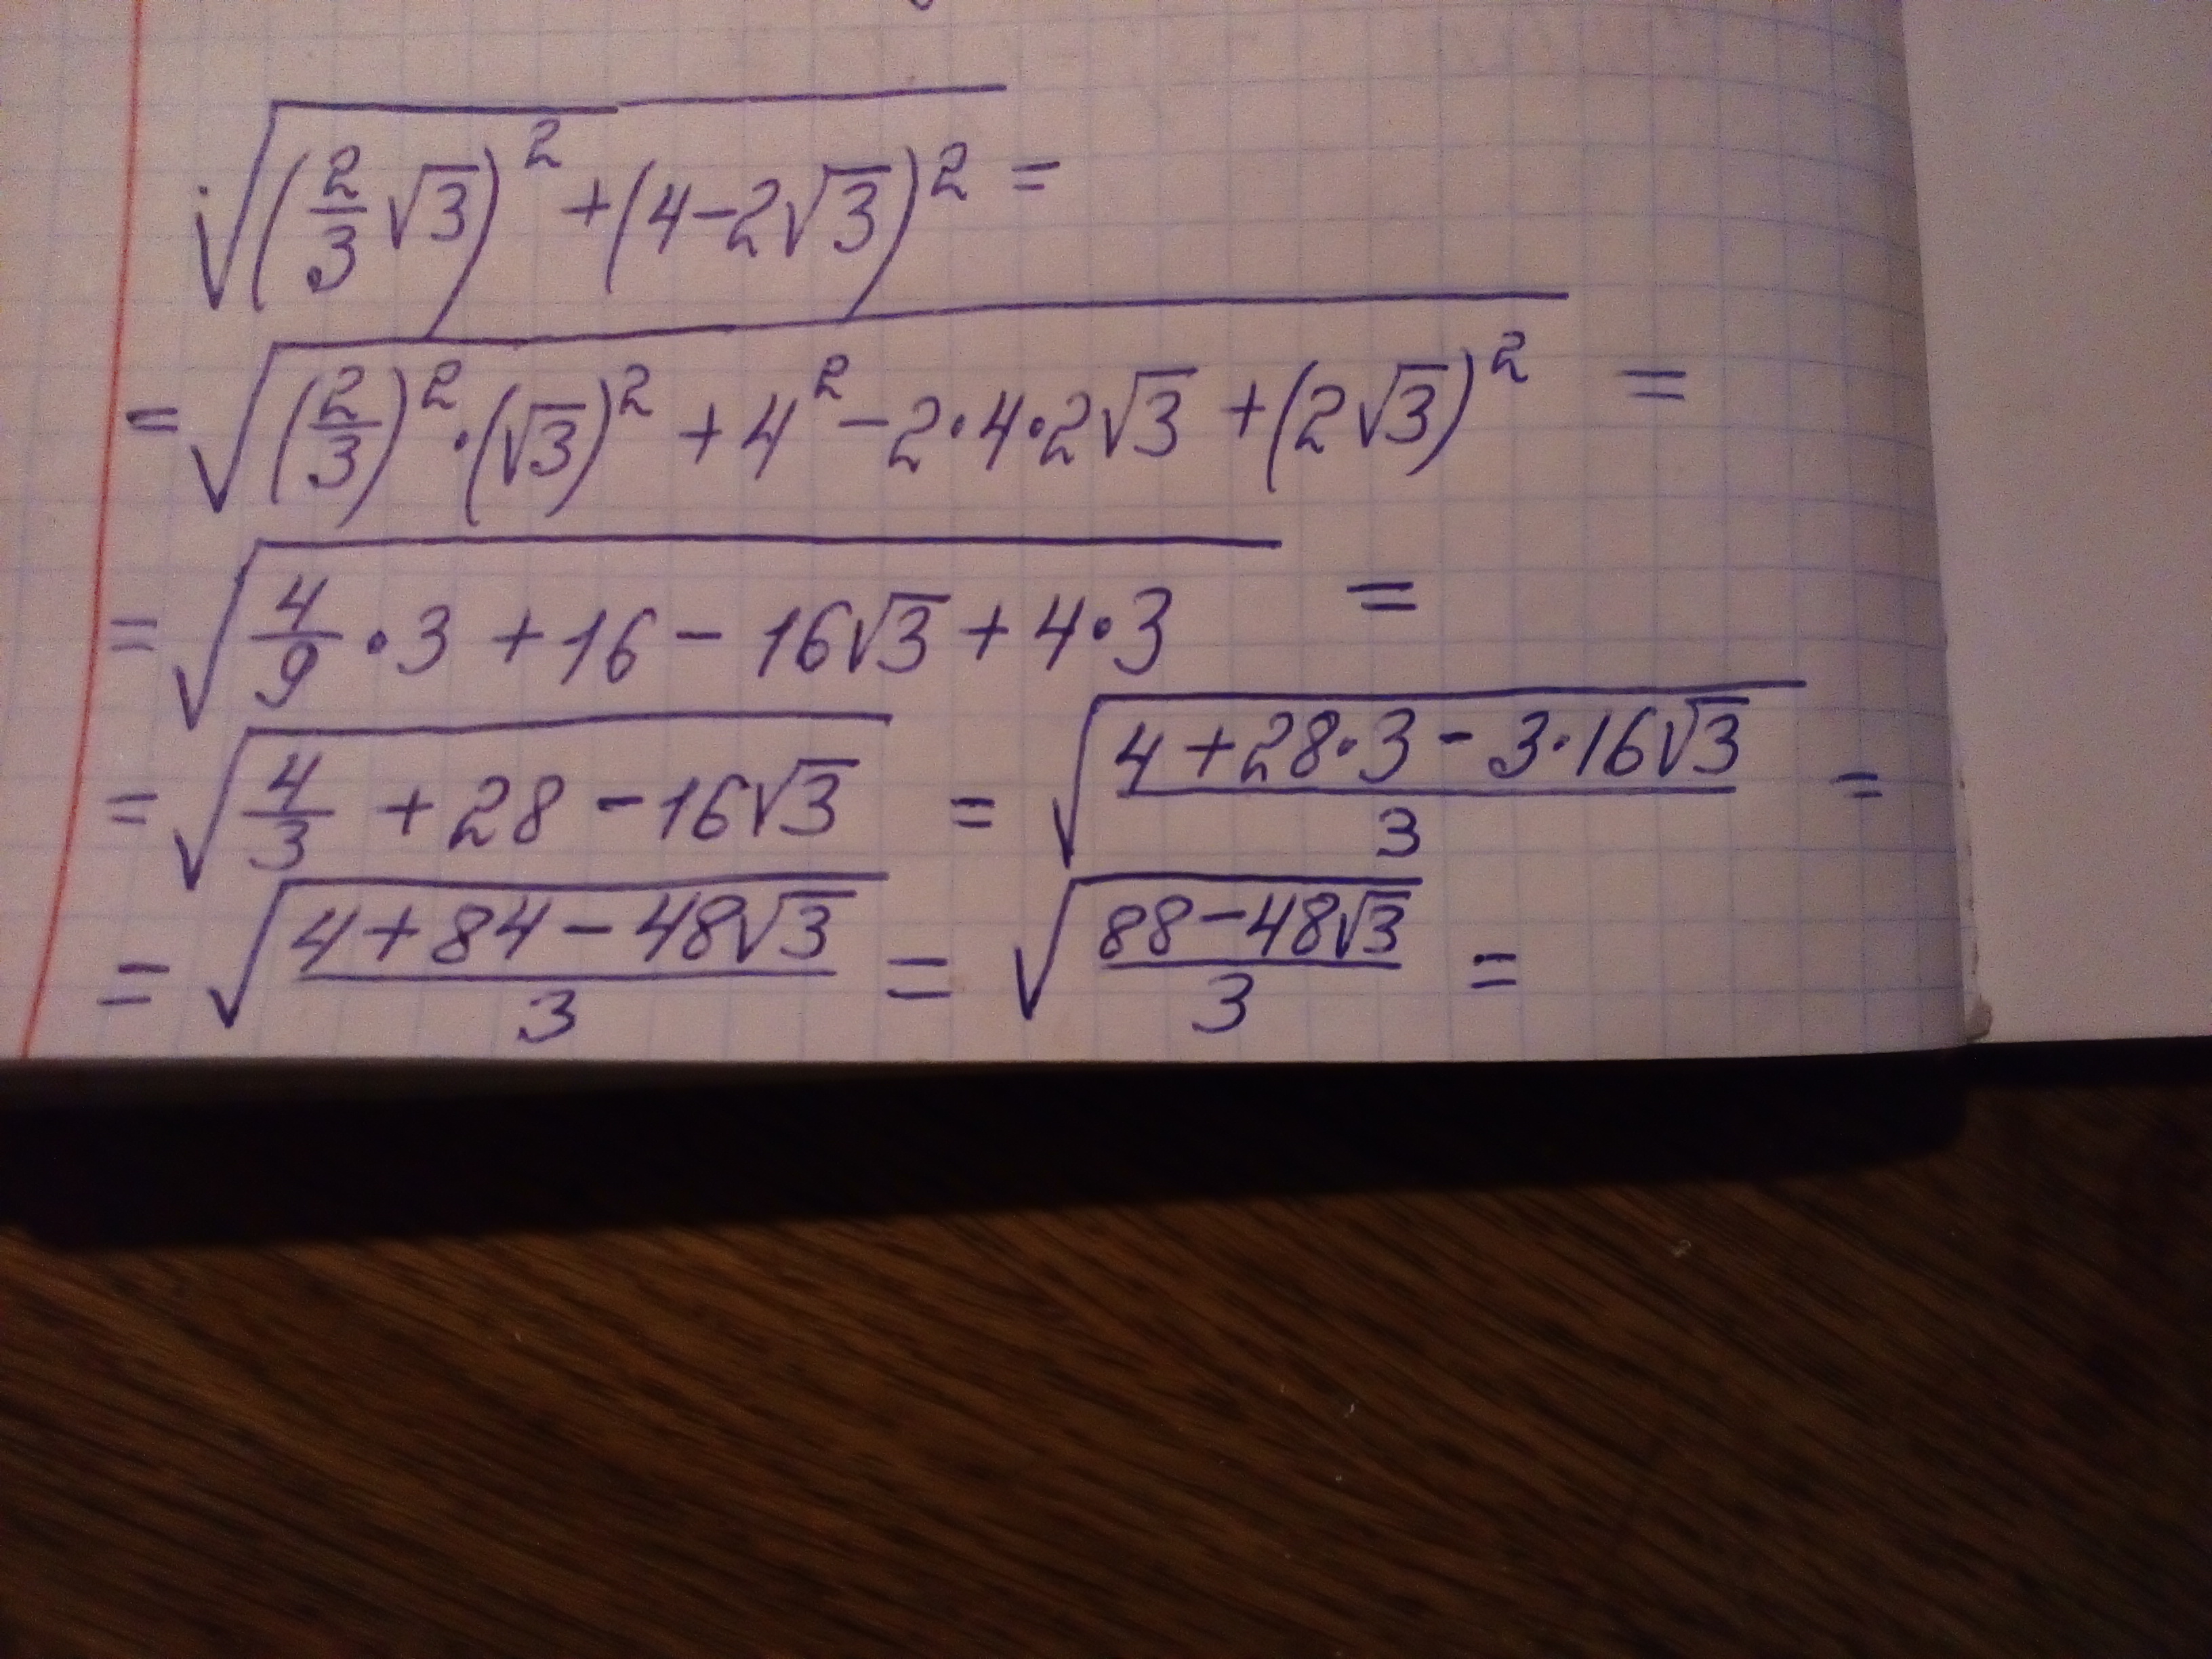 √((2/3 √3)² + (4 - 2√3)²) =
= √((2/3)² · (√3)² + 4² - 2·4·2√3 + (2√3)²) =
= √(4/9 · 3 + 16 - 16√3 + 4·3) =
= √(4/3 + 28 - 16√3) = √((4 + 28·3 - 3·16√3)/3) =
= √((4 + 84 - 48√3)/3) = √((88 - 48√3)/3) =